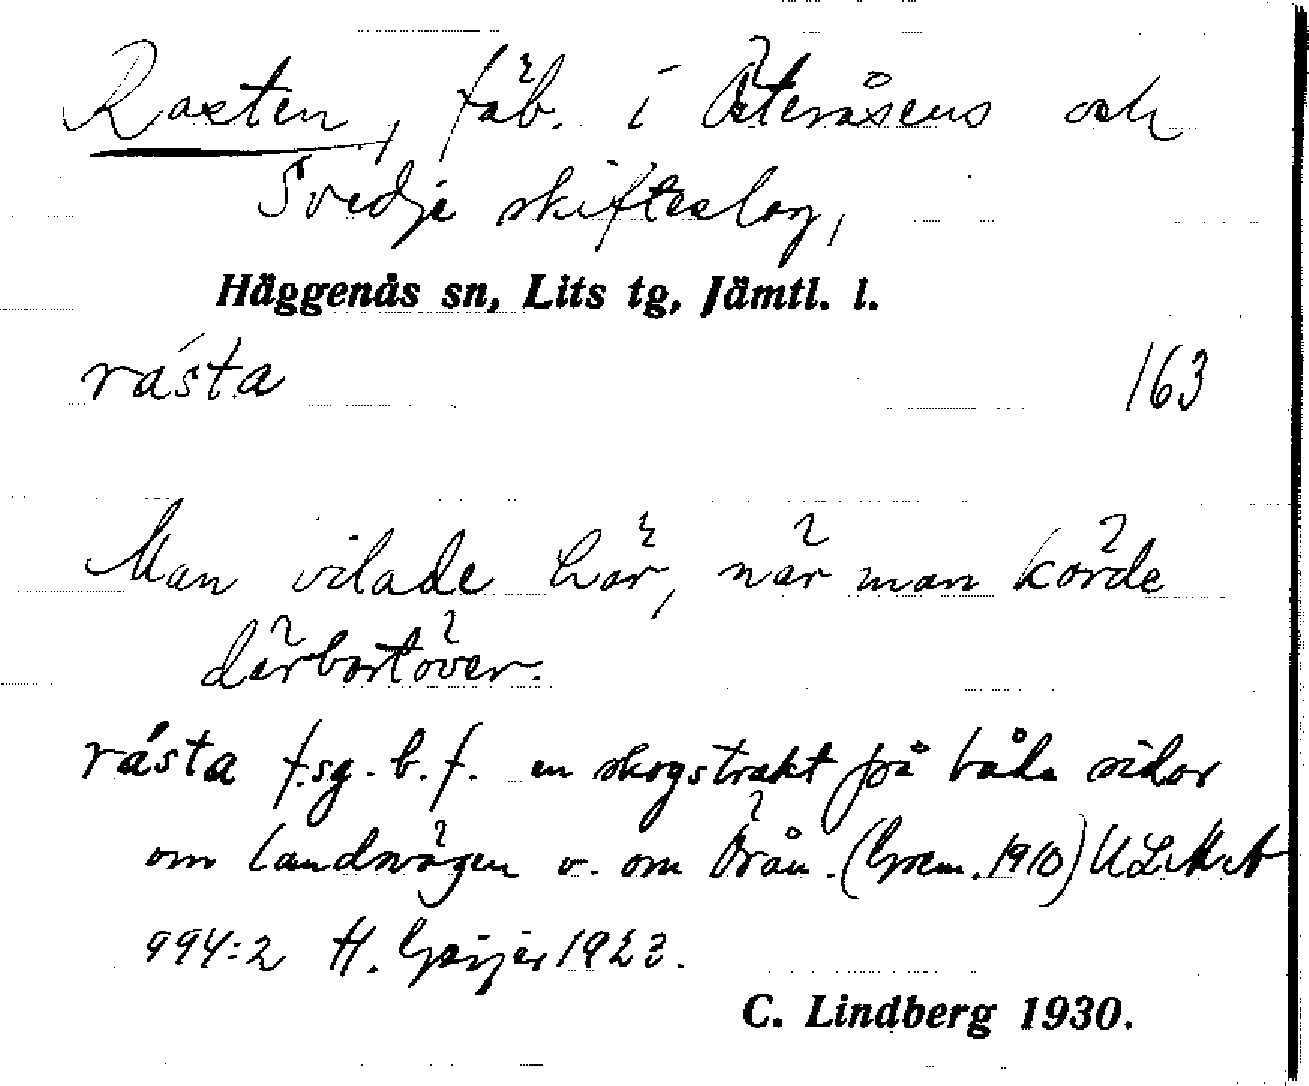 Rasten, fäb. i Österåsens och
Svedje skifteslag,
Häggenås sn, Lits tg, Jämtl. l.
rásta 163
Man vilade här, när man körde
därbortöver.
rásta f. sg. b. f. en skogstrakt på båda sidor
om landsvägen v. om Örån. (Grem. 1910) ULMA
994:2 H. Geijer 1923.
C. Lindberg 1930.